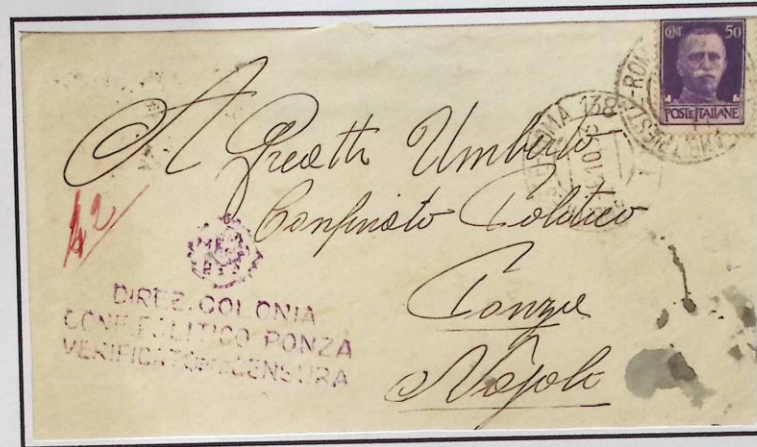 CENT 50
POSTE ITALIANE
ROMA 138
A Greatti Umberto
Confinato Politico
Ponza
Napoli
42
DIREZ. COLONIA
CONF. POLITICO PONZA
VERIFICATO PER CENSURA